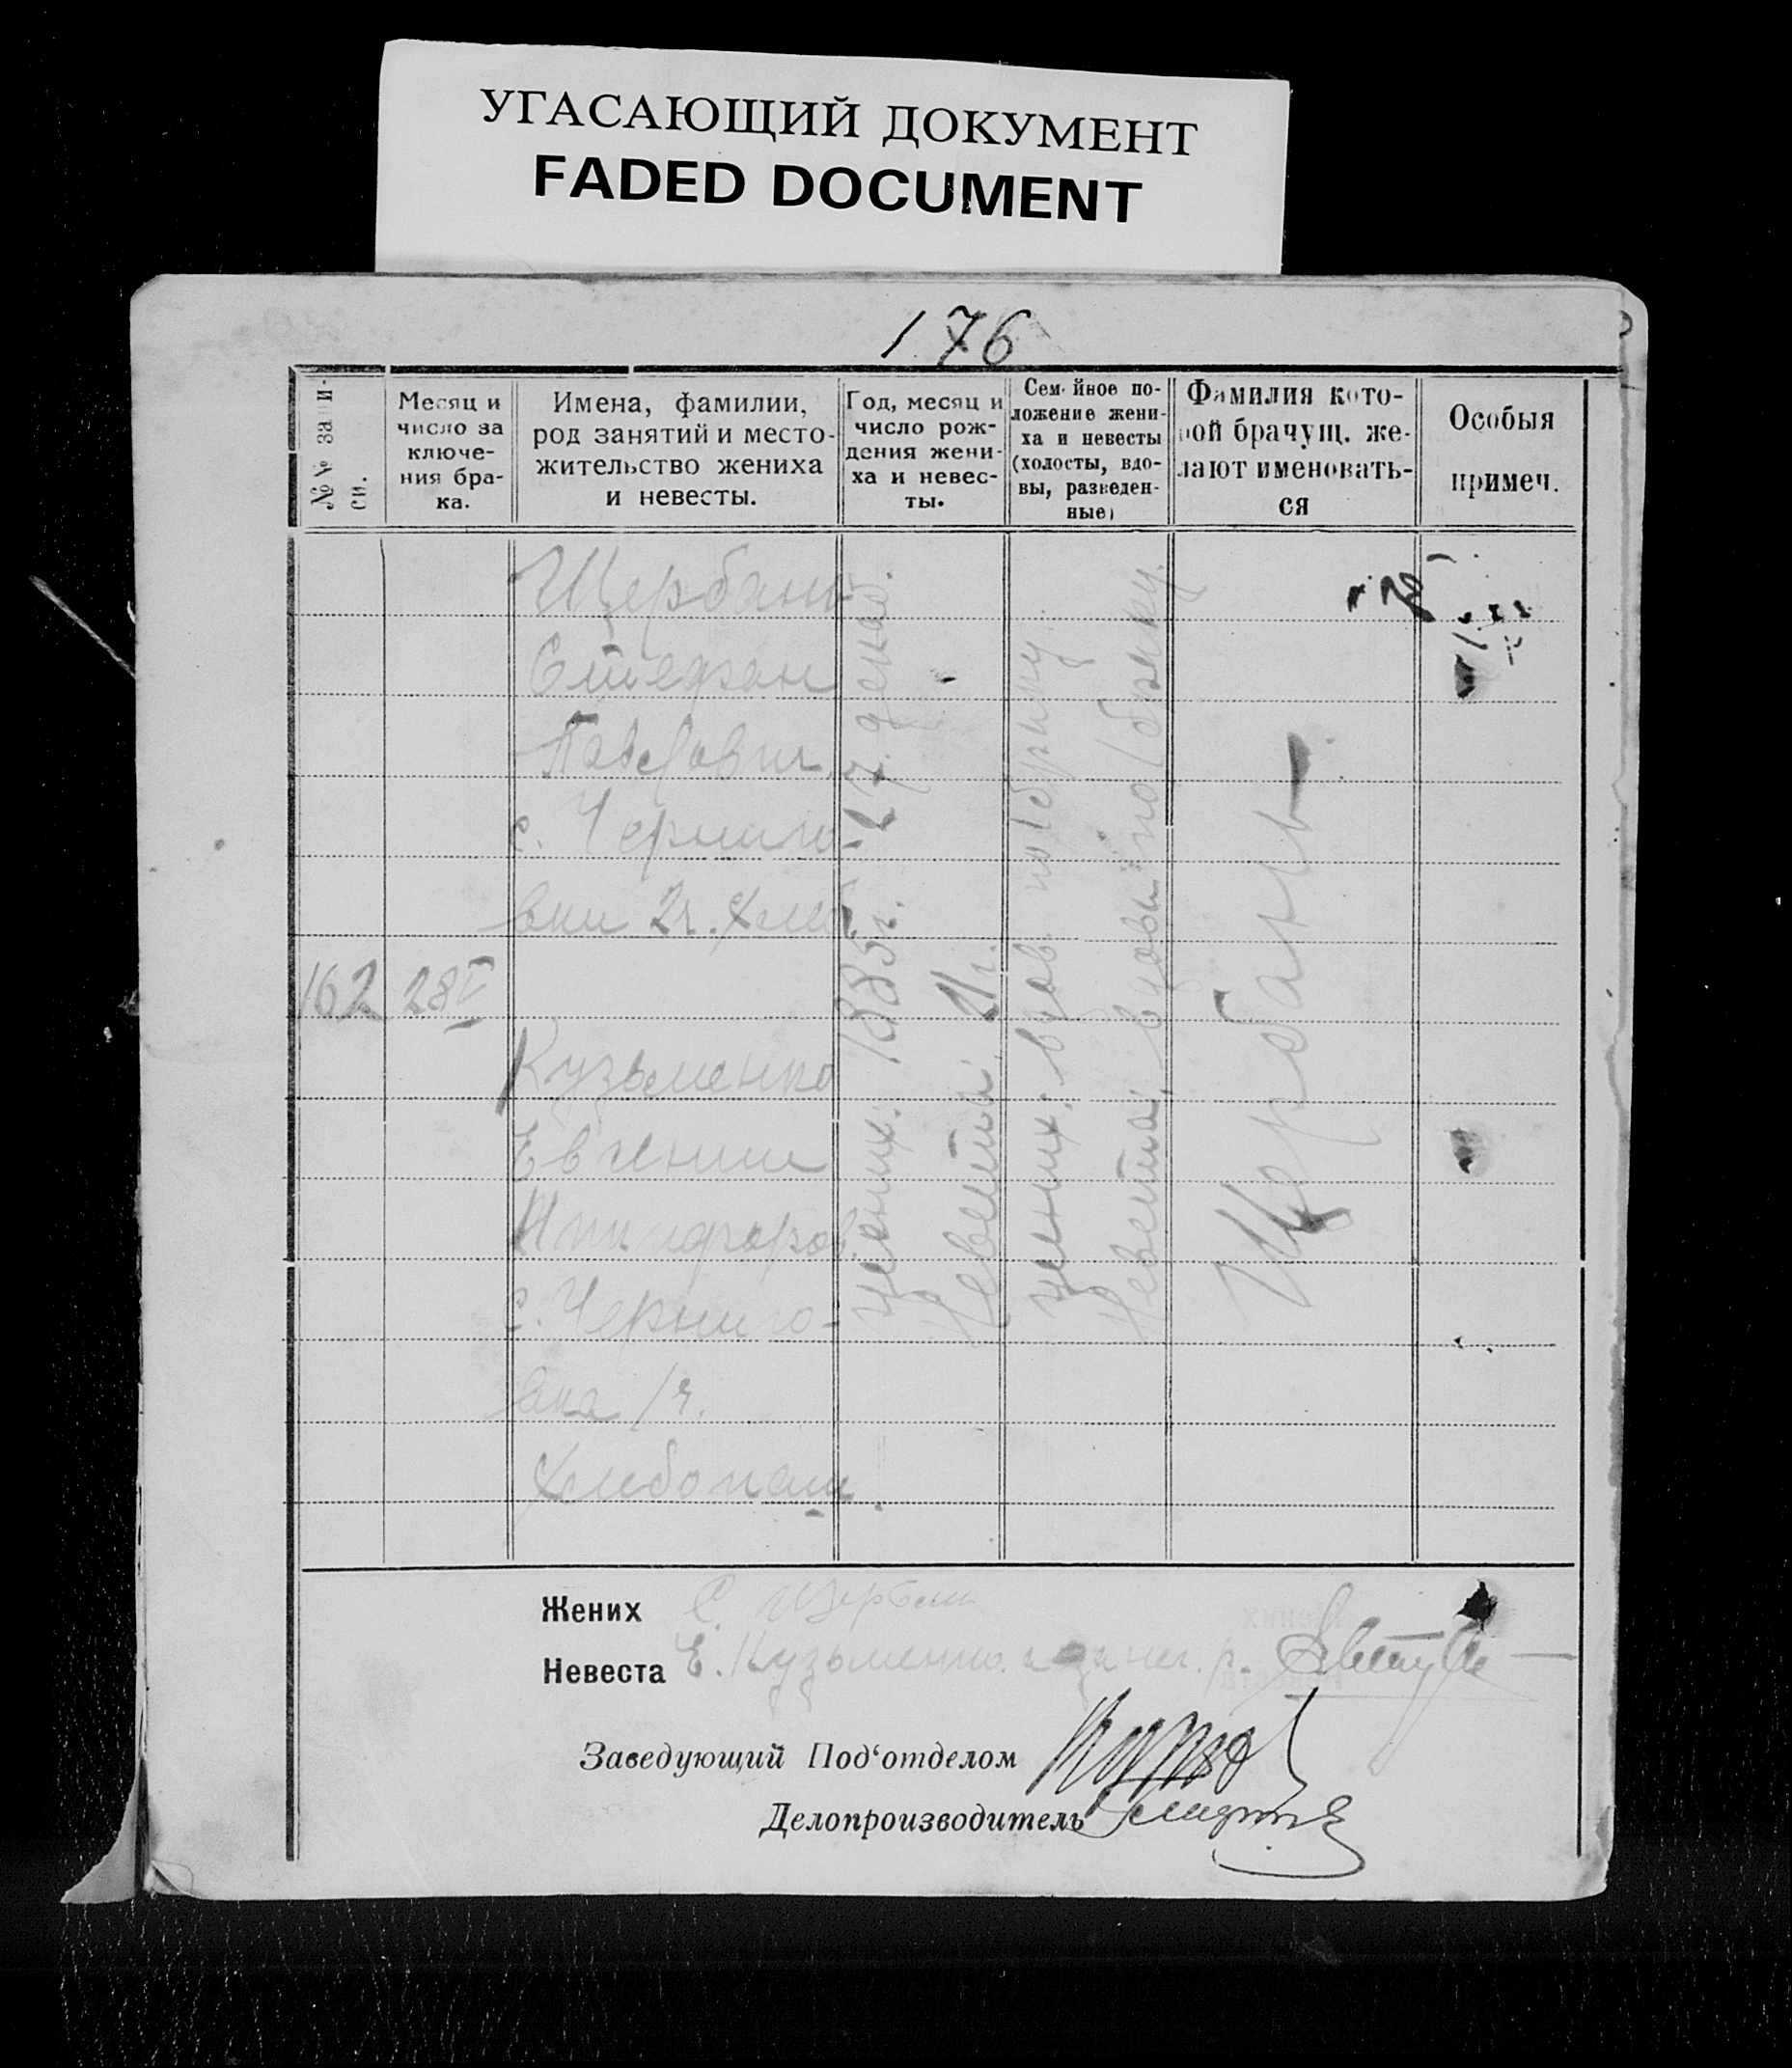 УГАСАЮЩИЙ ДОКУМЕНТ
FADED DOCUMENT
176
№№ запи-
си.
Месяц и
число за
ключе-
ния бра-
ка.
Имена, фамилии,
род занятий и место-
жительство жениха
и невесты.
Год, месяц и
число рож-
дения жени-
ха и невес-
ты.
Семейное по-
ложение жени-
ха и невесты
(холосты, вдо-
вы, разведен-
ные)
Фамилия кото-
рой брачущ. же-
лают именовать-
ся
Особыя
примеч.
162
28 V
Щербань
Стефан
Павлович
с. Черниго-
вки 2ч. хлеб
Кузьменко
Евгении
Никифоров.
с. Черниго-
вка 1ч.
Хлебопаш.
Жених: 1885г. 17 декаб.
Невеста:
жених: вдов. по 1 браку
Невеста: вдова по 1 браку.
Щербань
Жених С. Щербань
Невеста Е. Кузьменко. а за нег. р.
Заведующий Под'отделом
Делопроизводитель